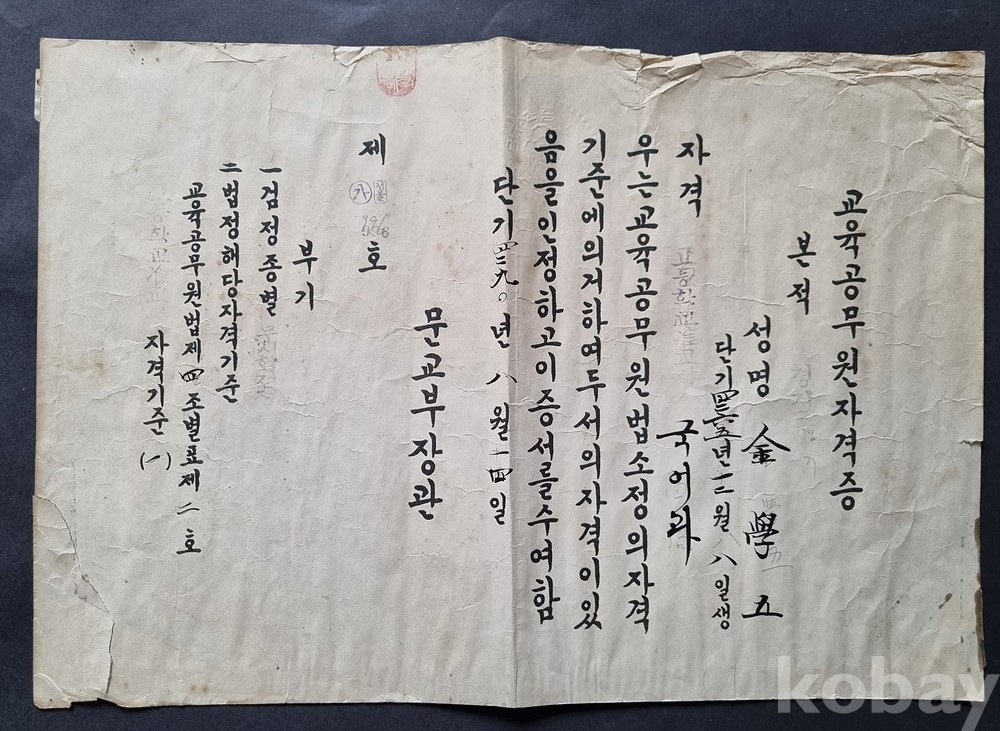 교육공무원자격증
본적
성명 金學五
단기四二六五년 十二월 八일생
자격 고등학교준교 국어과
우는교육공무원법소정의자격
기준에의거하여두서의자격이있
음을인정하고이증서를수여함
단기四二九〇년 八월 一四일
문교부장관
제 가 호
부기
一검정종별
二법정해당자격기준
교육공무원법제四조별표제二호
자격기준(一)
kobay